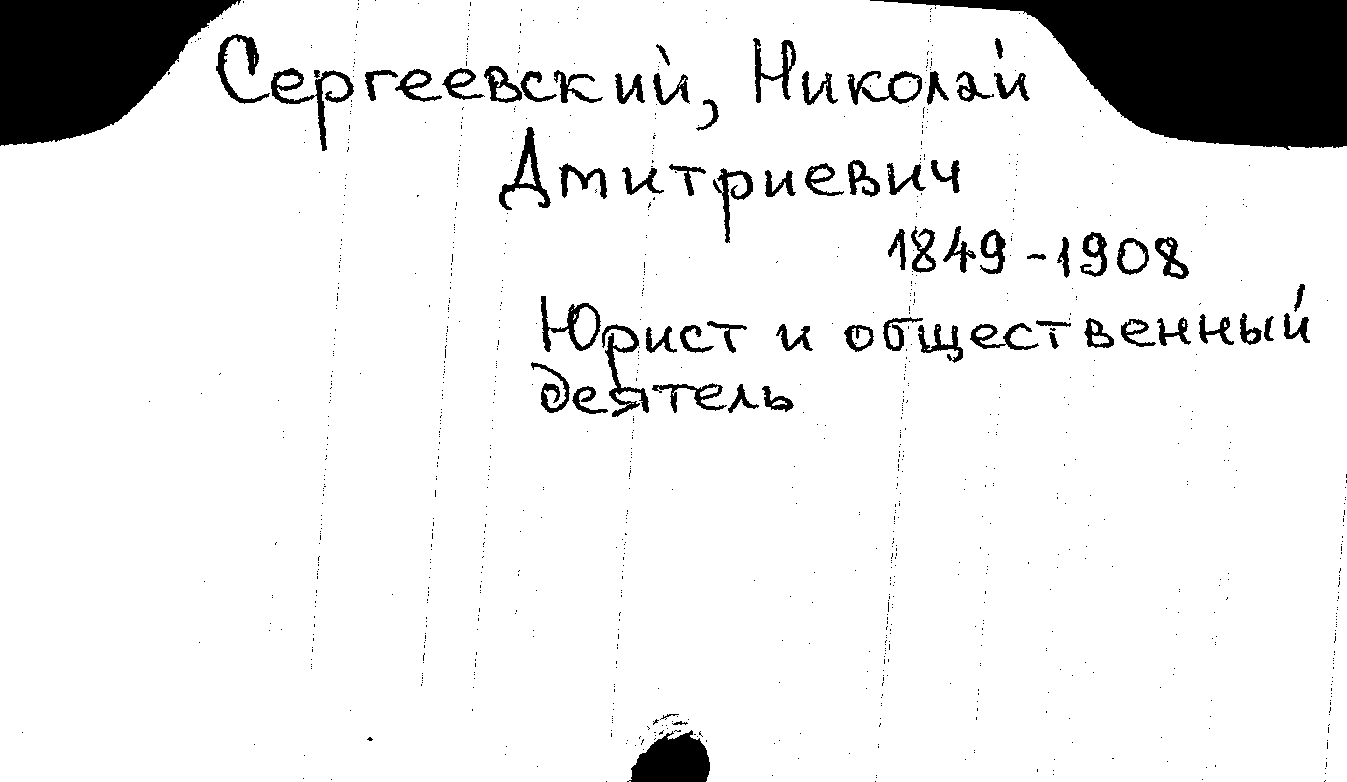 Сергеевский, Николай
Дмитриевич
1849-1908
Юрист и общественный
деятель